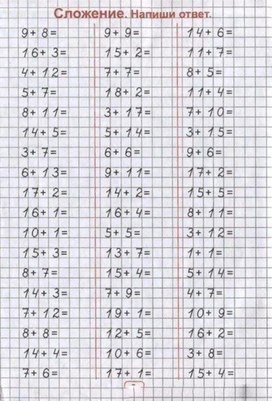 Сложение. Напиши ответ.
9+8= 9+9= 14+6=
16+3= 15+2= 11+7=
4+12= 7+7= 8+5=
5+7= 18+2= 11+5=
8+11= 3+17= 7+10=
14+5= 5+14= 3+15=
3+7= 6+6= 9+6=
6+13= 9+11= 17+2=
17+2= 14+2= 15+5=
16+1= 16+4= 8+11=
10+1= 5+5= 3+12=
15+3= 13+7= 1+1=
8+7= 15+4= 5+14=
14+3= 7+9= 4+7=
7+12= 19+1= 10+9=
8+8= 12+5= 16+2=
14+4= 10+6= 3+8=
7+6= 17+1= 15+4=